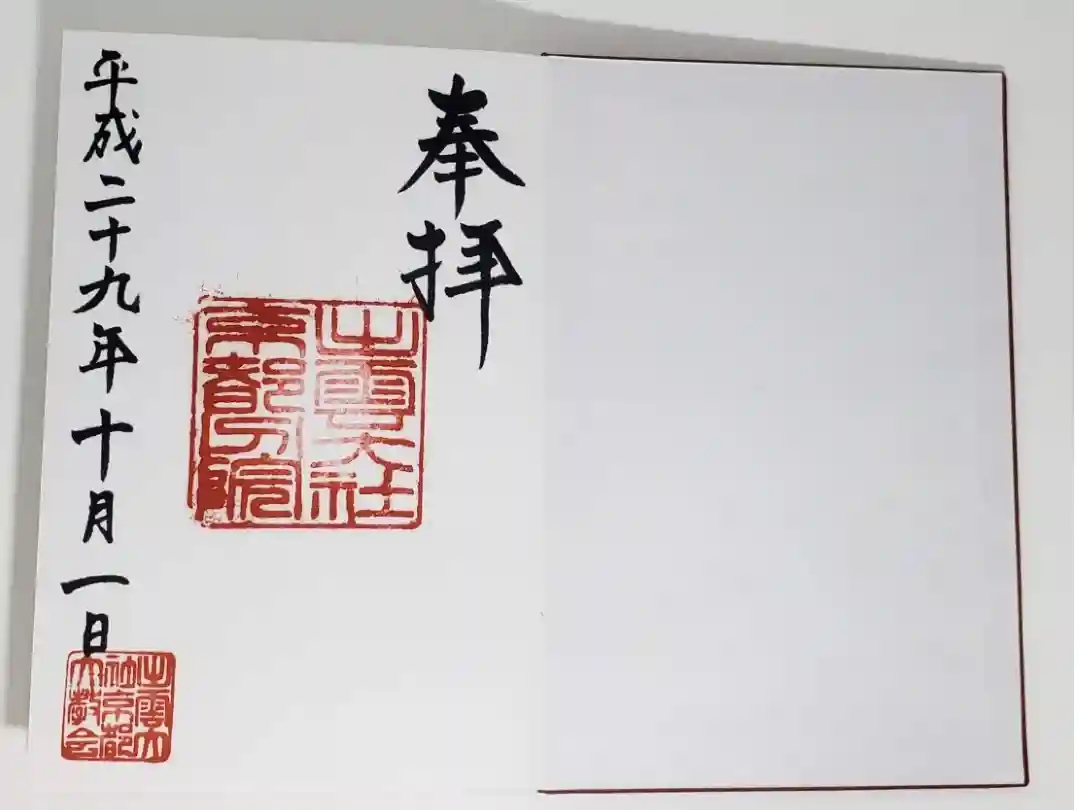 奉拝
出雲大社
京都分院
平成二十九年十月一日
出雲大
社京都
大教会